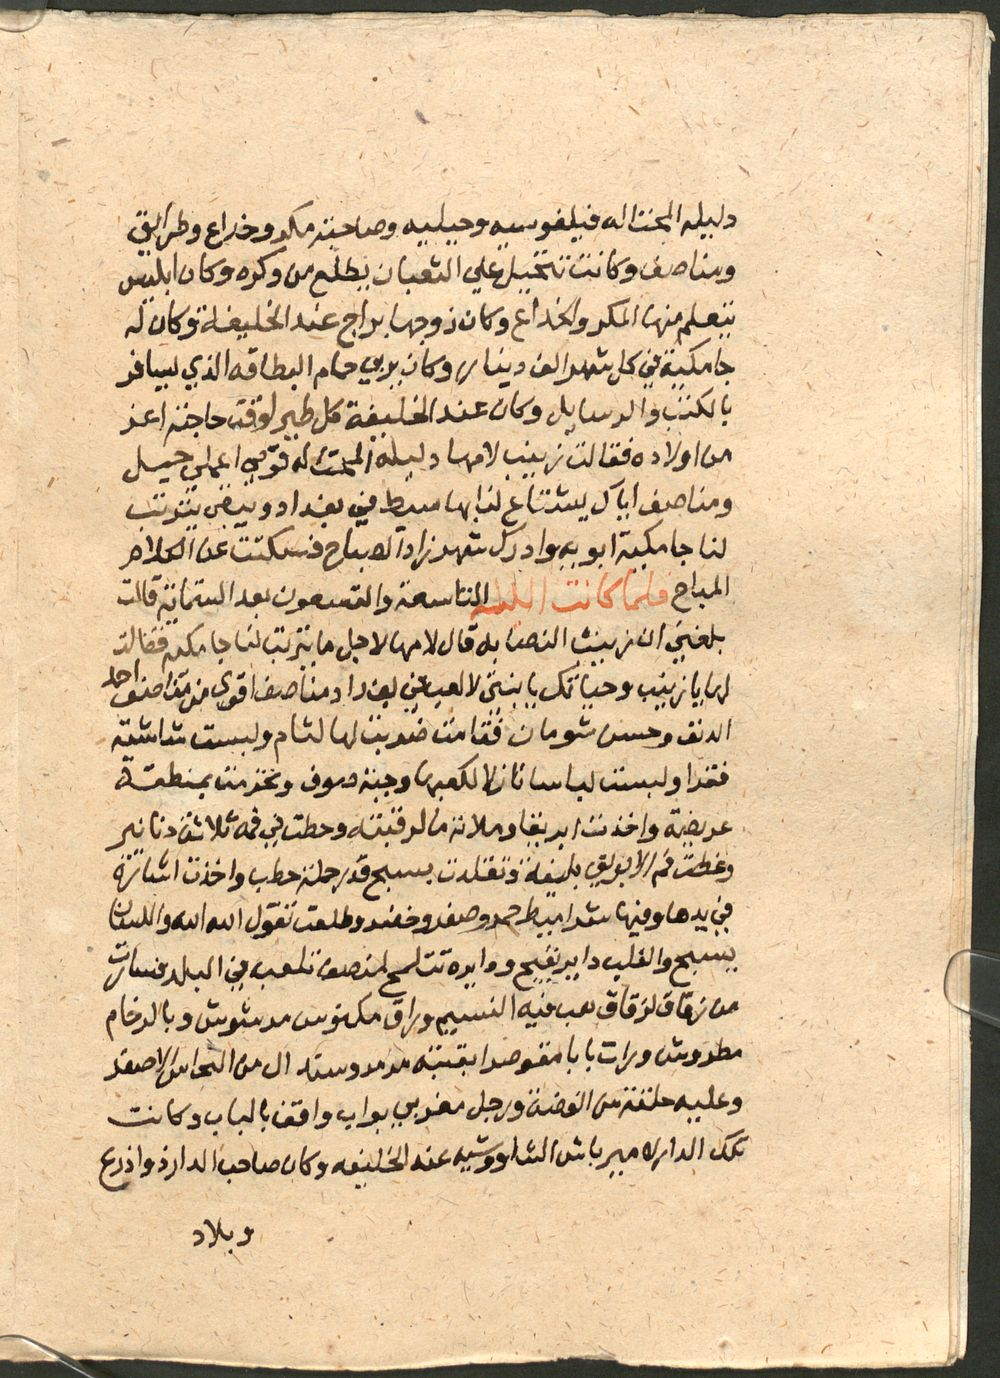 دليله المحتاله فيلفوسيه وحيليه وصاحبة مكر وخداع وطرايق
ومناصف وكانت تتحيل علي الثعبان يطلع من وكره وكان ابليس
يتعلم منها المكر والخداع وكان زوجها براج عند الخليفة وكان له
جامكية في كل شهر الف دينار وكان يربي حمام البطاقه الذي يسافر
بالكتب والرسايل وكان عند الخليفة كل طير لوقت حاجته اعز
من اولاده فقالت زينب لامها دليله المحتاله قومي اعملي حيل
ومناصف اياك يشتاع لنا بها سيط في بغداد ويبقي يترتب
لنا جامكية ابويه وادرك شهرزاد الصباح فسكتت عن الكلام
المباح فلما كانت الليلة التاسعة والتسعون بعد الستماية قالت
بلغني ان زينب النصابه قال لامها لاجل ما يترتب لنا جامكيه فقالت
لها يا زينب وحياتك يا بنتي لالعب في بغداد مناصف اقوي من مناصف احمد
الدنف وحسن شومان فقامت ضربت لها لثام ولبست شاشية
فقرا ولبست لباسا نازلا لكعبها وجبة صوف وتحزمت بمنطقة
عريضة واخذت ابريقا وملاته ما لرقبته وحطت في فمه ثلاثة دنانير
وغطت فم الابريق بليفة وتقلدت بسبح قدر حملة حطب واخذت اشارة
في يدها وفيها شراميط حمر وصفر وخضر وطلعت تقول الله الله واللسان
يسبح والقلب داير يقبح ودايره تتلمح لمنصف تلعب في البلد فسارت
من زقاق لزقاق يعب فيه النسيم وراق مكنوس مرشوش وبالرخام
مطروش ورات بابا مقوصرا بعتبه مرمر وستد ال من النحاس الاصفر
وعليه حلقة من الفضة ورجل مغربي بواب واقف بالباب وكانت
تلك الدار لامير باش الشاووشيه عند الخليفه وكان صاحب الدار ذو اذرع
وبلاد